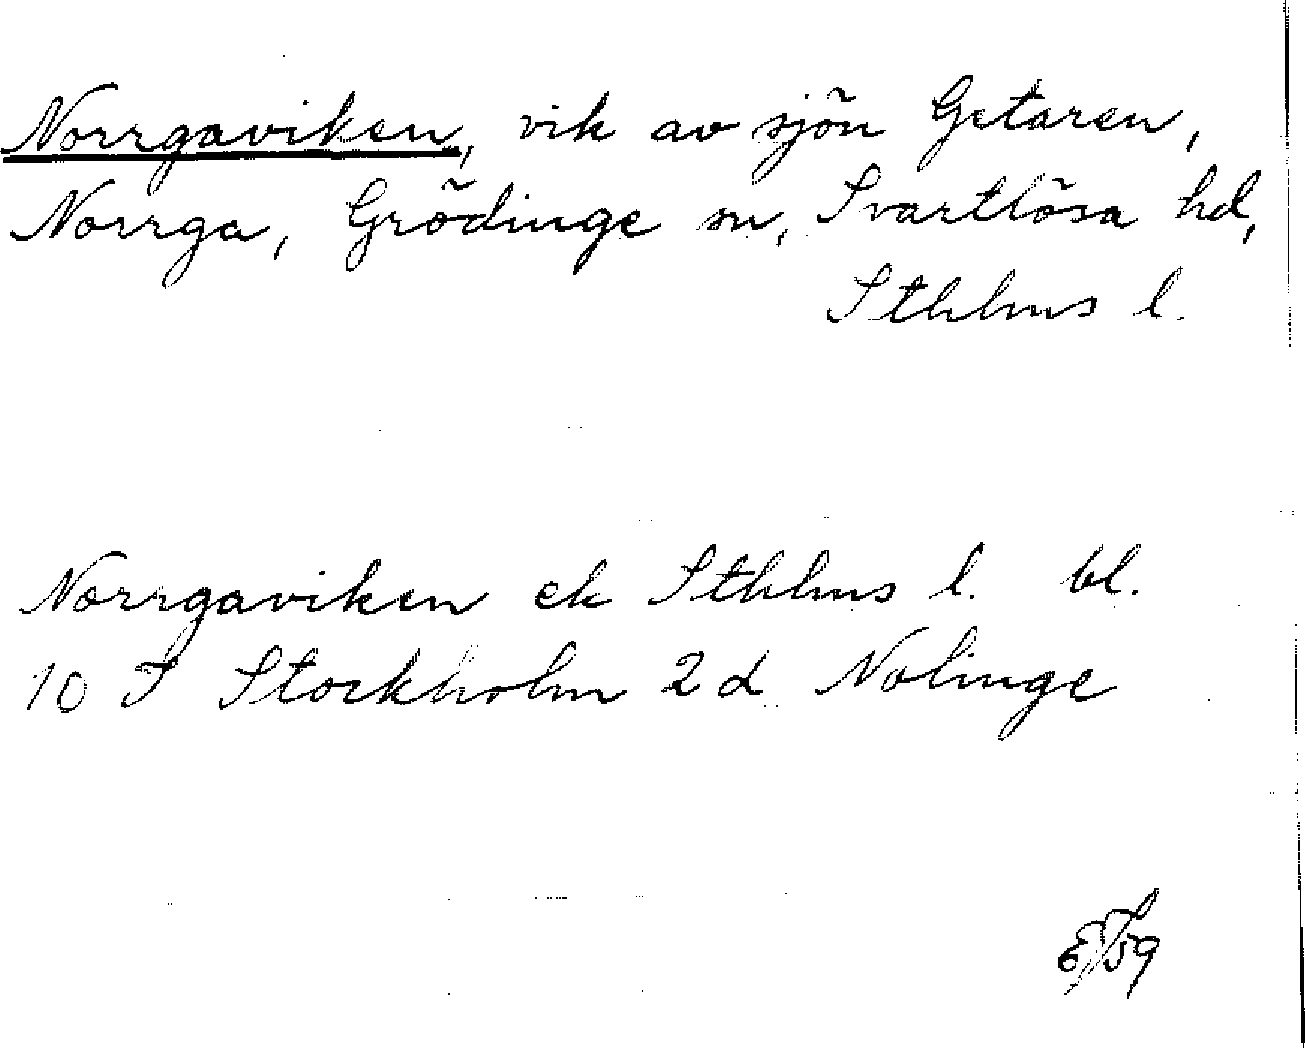 Norrgaviken, vik av sjön Getaren,
Norrga, Grödinge sn, Svartlösa hd,
Sthlms l.
Norrgaviken ek Sthlms l. bl.
10 I Stockholm 2 d Nolinge